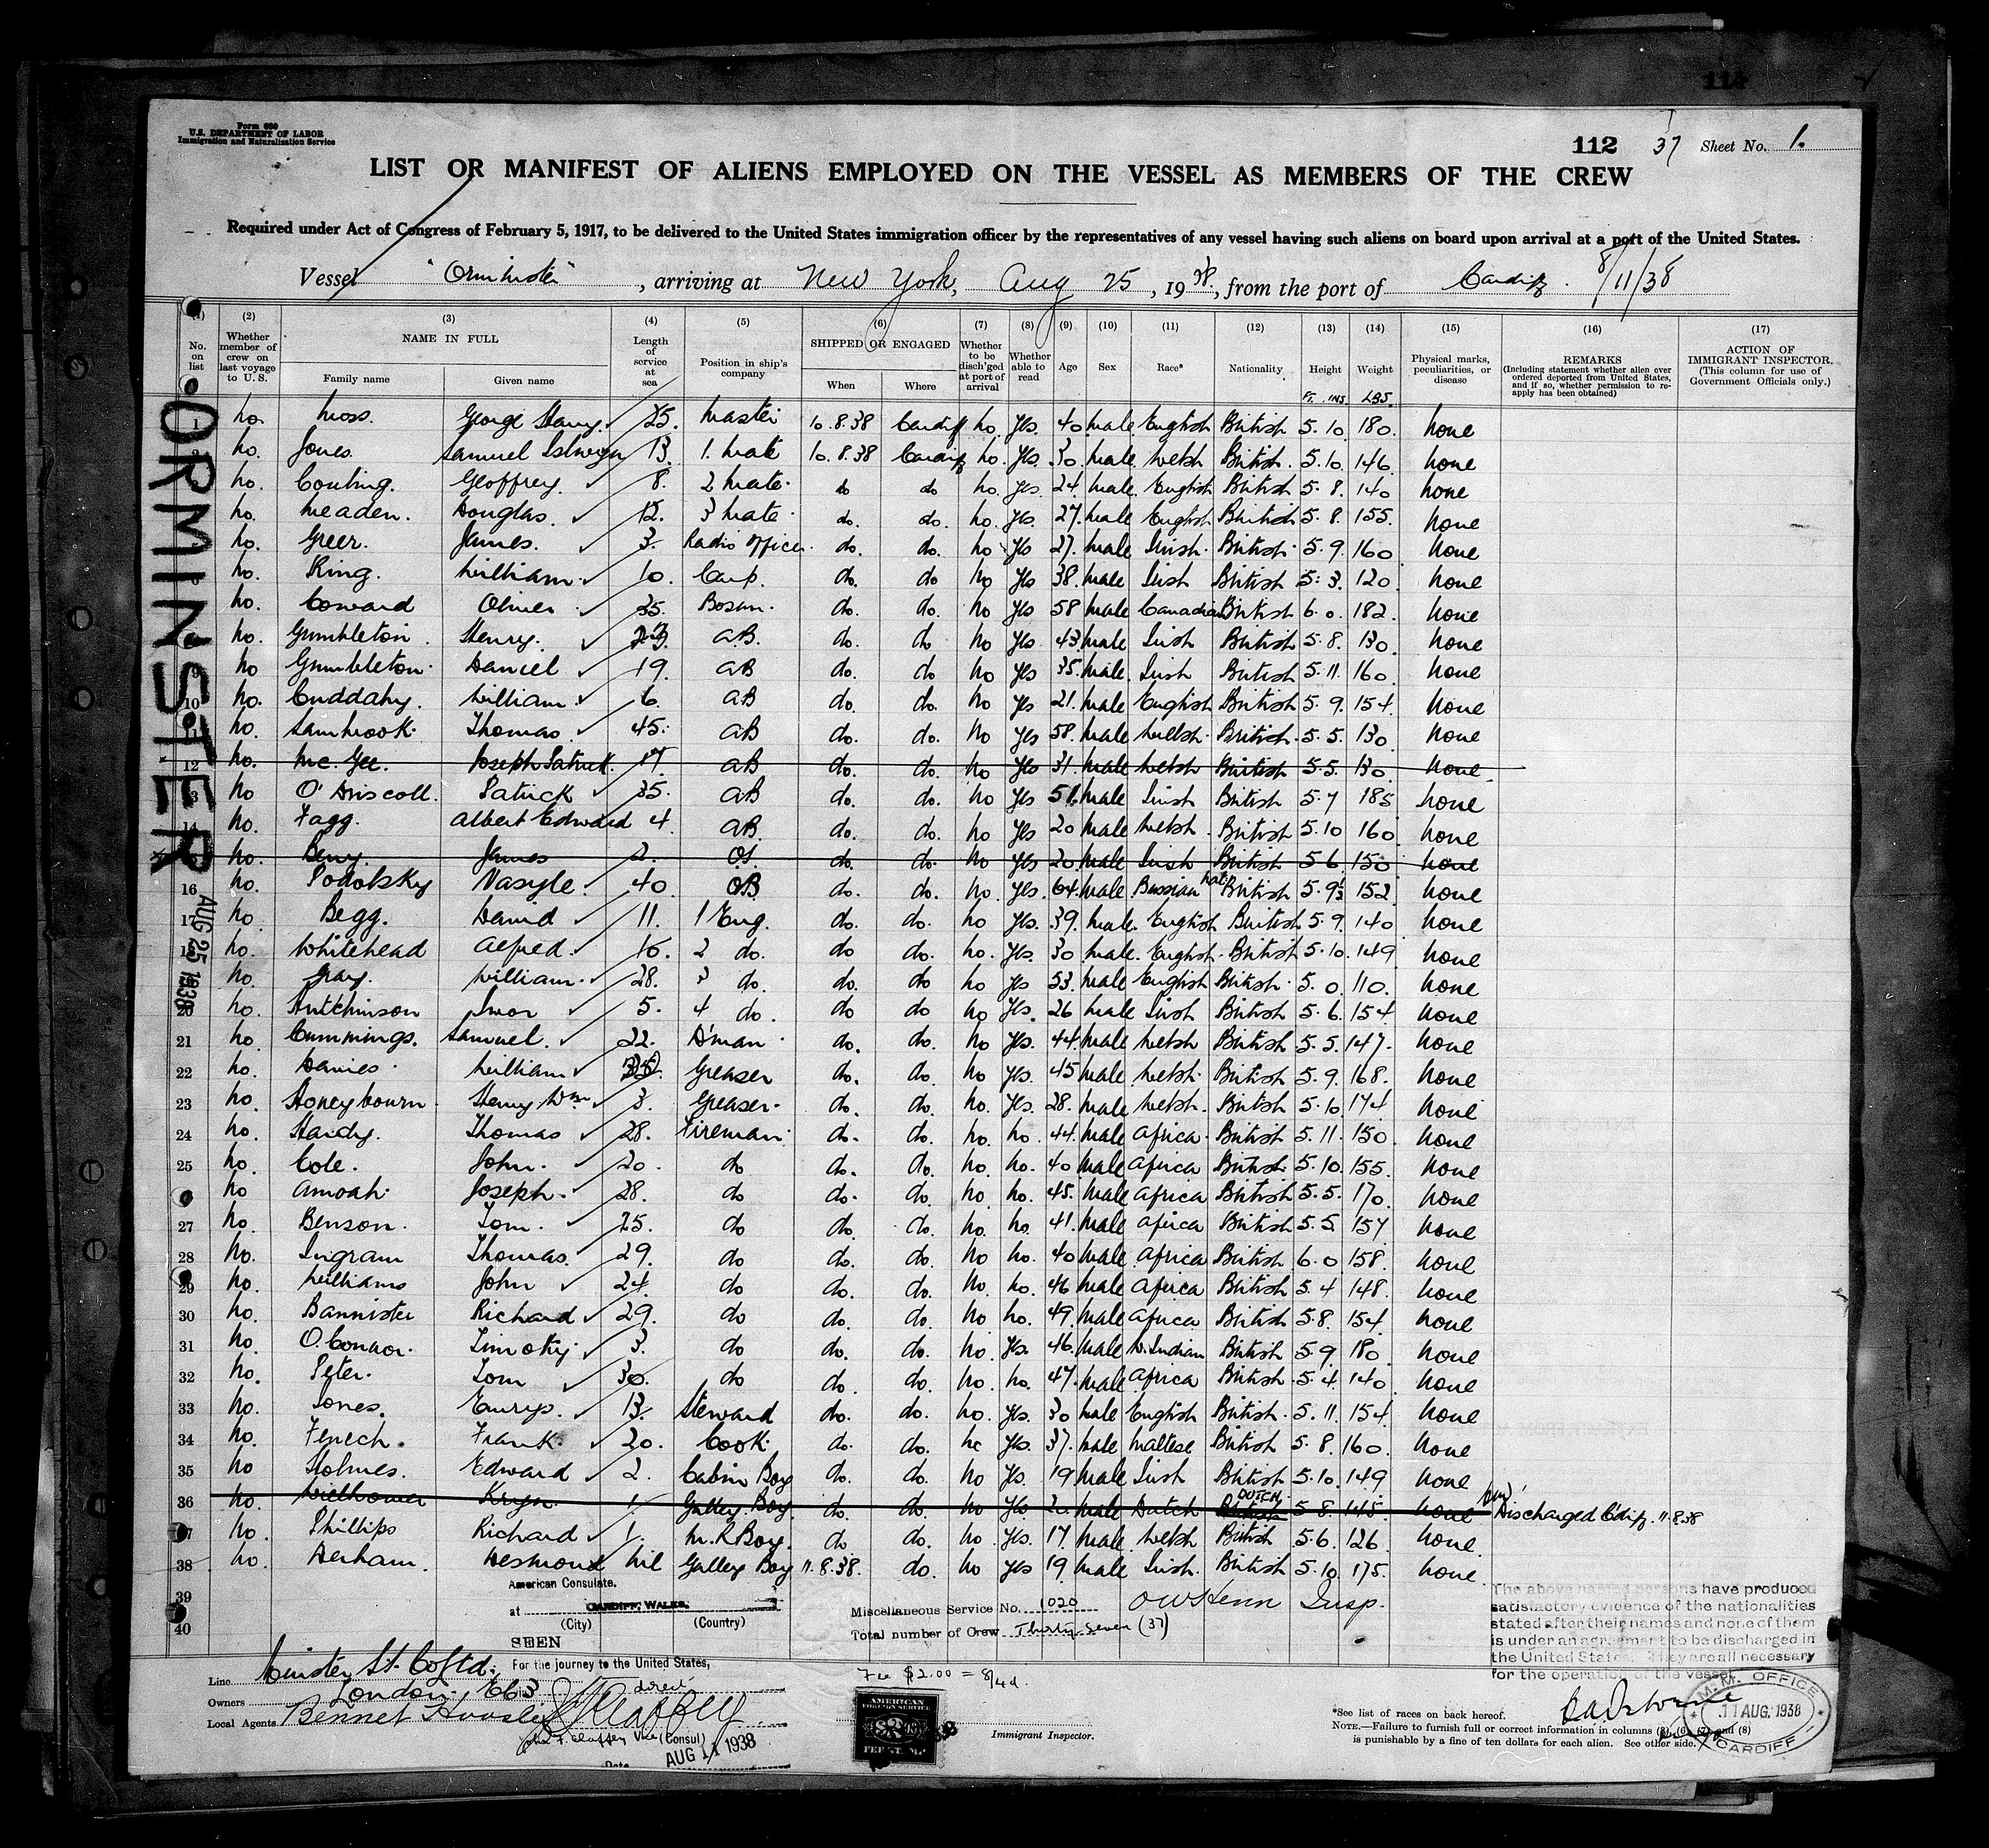 114
Form 680
U.S. DEPARTMENT OF LABOR
Immigration and Naturalization Service
112 37 Sheet No. 1.
LIST OR MANIFEST OF ALIENS EMPLOYED ON THE VESSEL AS MEMBERS OF THE CREW
Required under Act of Congress of February 5, 1917, to be delivered to the United States immigration officer by the representatives of any vessel having such aliens on board upon arrival at a port of the United States.
Vessel "Orminster", arriving at New York, Aug 25, 1938, from the port of Cardiff. 8/11/38
(1) No. on list
(2) Whether member of crew on last voyage to U. S.
(3) NAME IN FULL Family name Given name
(4) Length of service at sea
(5) Position in ship's company
(6) SHIPPED OR ENGAGED When Where
(7) Whether to be disch'ged at port of arrival
(8) Whether able to read
(9) Age
(10) Sex
(11) Race*
(12) Nationality
(13) Height FT. INS.
(14) Weight LBS.
(15) Physical marks, peculiarities, or disease
(16) REMARKS (Including statement whether alien ever ordered deported from United States, and if so, whether permission to re-apply has been obtained)
(17) ACTION OF IMMIGRANT INSPECTOR. (This column for use of Government Officials only.)
ORMINSTER
AUG 25 1938
1 no. Moss. George Henry. 25. Master 10.8.38 Cardiff no Yes. 40 male English British 5.10. 180. none
2 no. Jones. Samuel Islwyn 13. 1. Mate 10.8.38 Cardiff no. Yes. 30. male. Welsh British. 5.10. 146. none
3 no. Couling. Geoffrey. 8. 2 Mate. do do no. Yes. 24. male. English British 5.8. 140 none
4 no. Meaden. Douglas. 12. 3 Mate. do. do. no. Yes. 27. male English British 5.8. 155. none
5 no. Greer. James. 3. Radio Officer. do. do. no Yes 27. male Irish. British. 5.9. 160 none
6 no. King. William. 10. Carp. do. do no Yes 38. male Irish British 5.3. 120 none
7 no. Coward Oliver 35. Bosun. do. do. no Yes 58 male Canadian British 6.0. 182. none
8 no. Gumbleton. Henry. AB. do. do no Yes 43 male Irish British 5.8. 130. none
9 no Gumbleton. Daniel 19. AB do. do no Yes 35. male. Irish British 5.11. 160. none
10 no. Cuddahy. William 6. AB do. do. no Yes 21. male English British 5.9. 154. none
11 no. Sambrook. Thomas. 45. AB do. do. no Yes 58. male Welsh. British. 5.5. 130 none
12 no. Mc. Gee. Joseph Patrick. 17. AB do. do. no Yes 31. male Welsh British 5.5. 130. none.
13 no O'Driscoll. Patrick 35. AB do. do. no Yes 51. male Irish British 5.7 185 none
14 no. Fagg. Albert Edward 4. AB. do. do. no Yes 20 male Welsh. British 5.10 160 none
no. Berry. James 2. OS. do. do. no Yes 20 male Irish British 5.6. 150 none
16 no. Podolsky Vasyle. 40. do. do. no. Yes. 64. male Russian nat. British 5.9½ 152. none
17 no. Begg. David 11. 1 Eng. do. do. no Yes. 39. male. English British 5.9. 140 none
18 no. Whitehead Alfred. 16. 2 do. do do. no. Yes. 30 male. English. British 5.10. 149 none
19 no. Gray. William. 28. 3 do. do. do no Yes 53. male English British. 5.0. 110. none
20 no. Hutchinson Ivor 5. 4 do. do do no Yes. 26 male Irish British 5.6. 154 none
21 no Cummings. Samuel. 22. D'man do. do. no Yes. 44. male Welsh British. 5.5. 147. none
22 no. Davies William Greaser do. do. no Yes. 45 male Welsh British 5.9. 168. none
23 no. Honeybourn. Henry Wm. 3. Greaser. do. do. no. Yes. 28. male Welsh. British 5.10. 174 none
24 no. Hardy. Thomas 28. Fireman do. do. no. no. 44. male Africa. British 5.11. 150. none
25 no. Cole. John. 20. do do. do. no. no. 40 male Africa British. 5.10. 155. none
no Amoah. Joseph. 28. do do. do. no no. 45. male Africa British 5.5. 170. none
27 no. Benson. Tom. 25. do do. do. no. no. 41. male Africa British 5.5. 157 none
28 no. Ingram Thomas. 29. do do. do. no no. 40 male Africa British 6.0 158. none
29 no. Williams John 24. do do. do. no. no. 46 male Africa British 5.4 148. none
30 no. Bannister Richard 29. do do. do. no no. 49. male Africa British 5.8. 154. none
31 no O.Connor. Timothy 3. do do. do. no. Yes. 46. male W.Indian British 5.9. 180. none
32 no. Peter. Tom 30. do do. do. no. no. 47. male Africa British 5.4. 140. none
33 no. Jones. Emrys. 13. Steward do. do. no. Yes. 30 male English British. 5.11. 154. none
34 no. Fenech. Frank. 20. Cook. do. do. no Yes. 37. male Maltese British 5.8. 160. none
35 no Holmes. Edward 2. Cabin Boy do. do. no Yes. 19 male Irish British 5.10. 149 none
36 no. Kryn. 1. Galley Boy. do. do. no Yes 20. male Dutch DUTCH 5.8. 145. none Discharged C'diff. 11.8.38
37 no. Phillips Richard 1. M.R Boy. do do. no. Yes. 17. male Welsh British 5.6. 126. none.
38 no. Derham. Desmond nil Galley Boy 11.8.38. do. no Yes 19. male Irish. British 5.10 175. none
39
40
American Consulate.
at CARDIFF, WALES.
(City) (Country)
SEEN
For the journey to the United States,
direct
John F. Claffey Vice (Consul)
Date AUG 11 1938
Miscellaneous Service No. 1020
Total number of Crew Thirty Seven (37)
Insp.
Fee $2.00 = 8/4d.
AMERICAN
FOREIGN SERVICE
$2
FEE STAMP
Immigrant Inspector.
Line Minster St. Co Ltd.
Owners London. EC3
Local Agents Bennet
The above named persons have produced
satisfactory evidence of the nationalities
stated after their names and none of them
is under an agreement to be discharged in
the United States. They are all necessary
for the operation of the vessel.
M.M. OFFICE
11 AUG. 1938
CARDIFF
*See list of races on back hereof.
NOTE.—Failure to furnish full or correct information in columns (3), (6), (7), and (8)
is punishable by a fine of ten dollars for each alien. See other side.